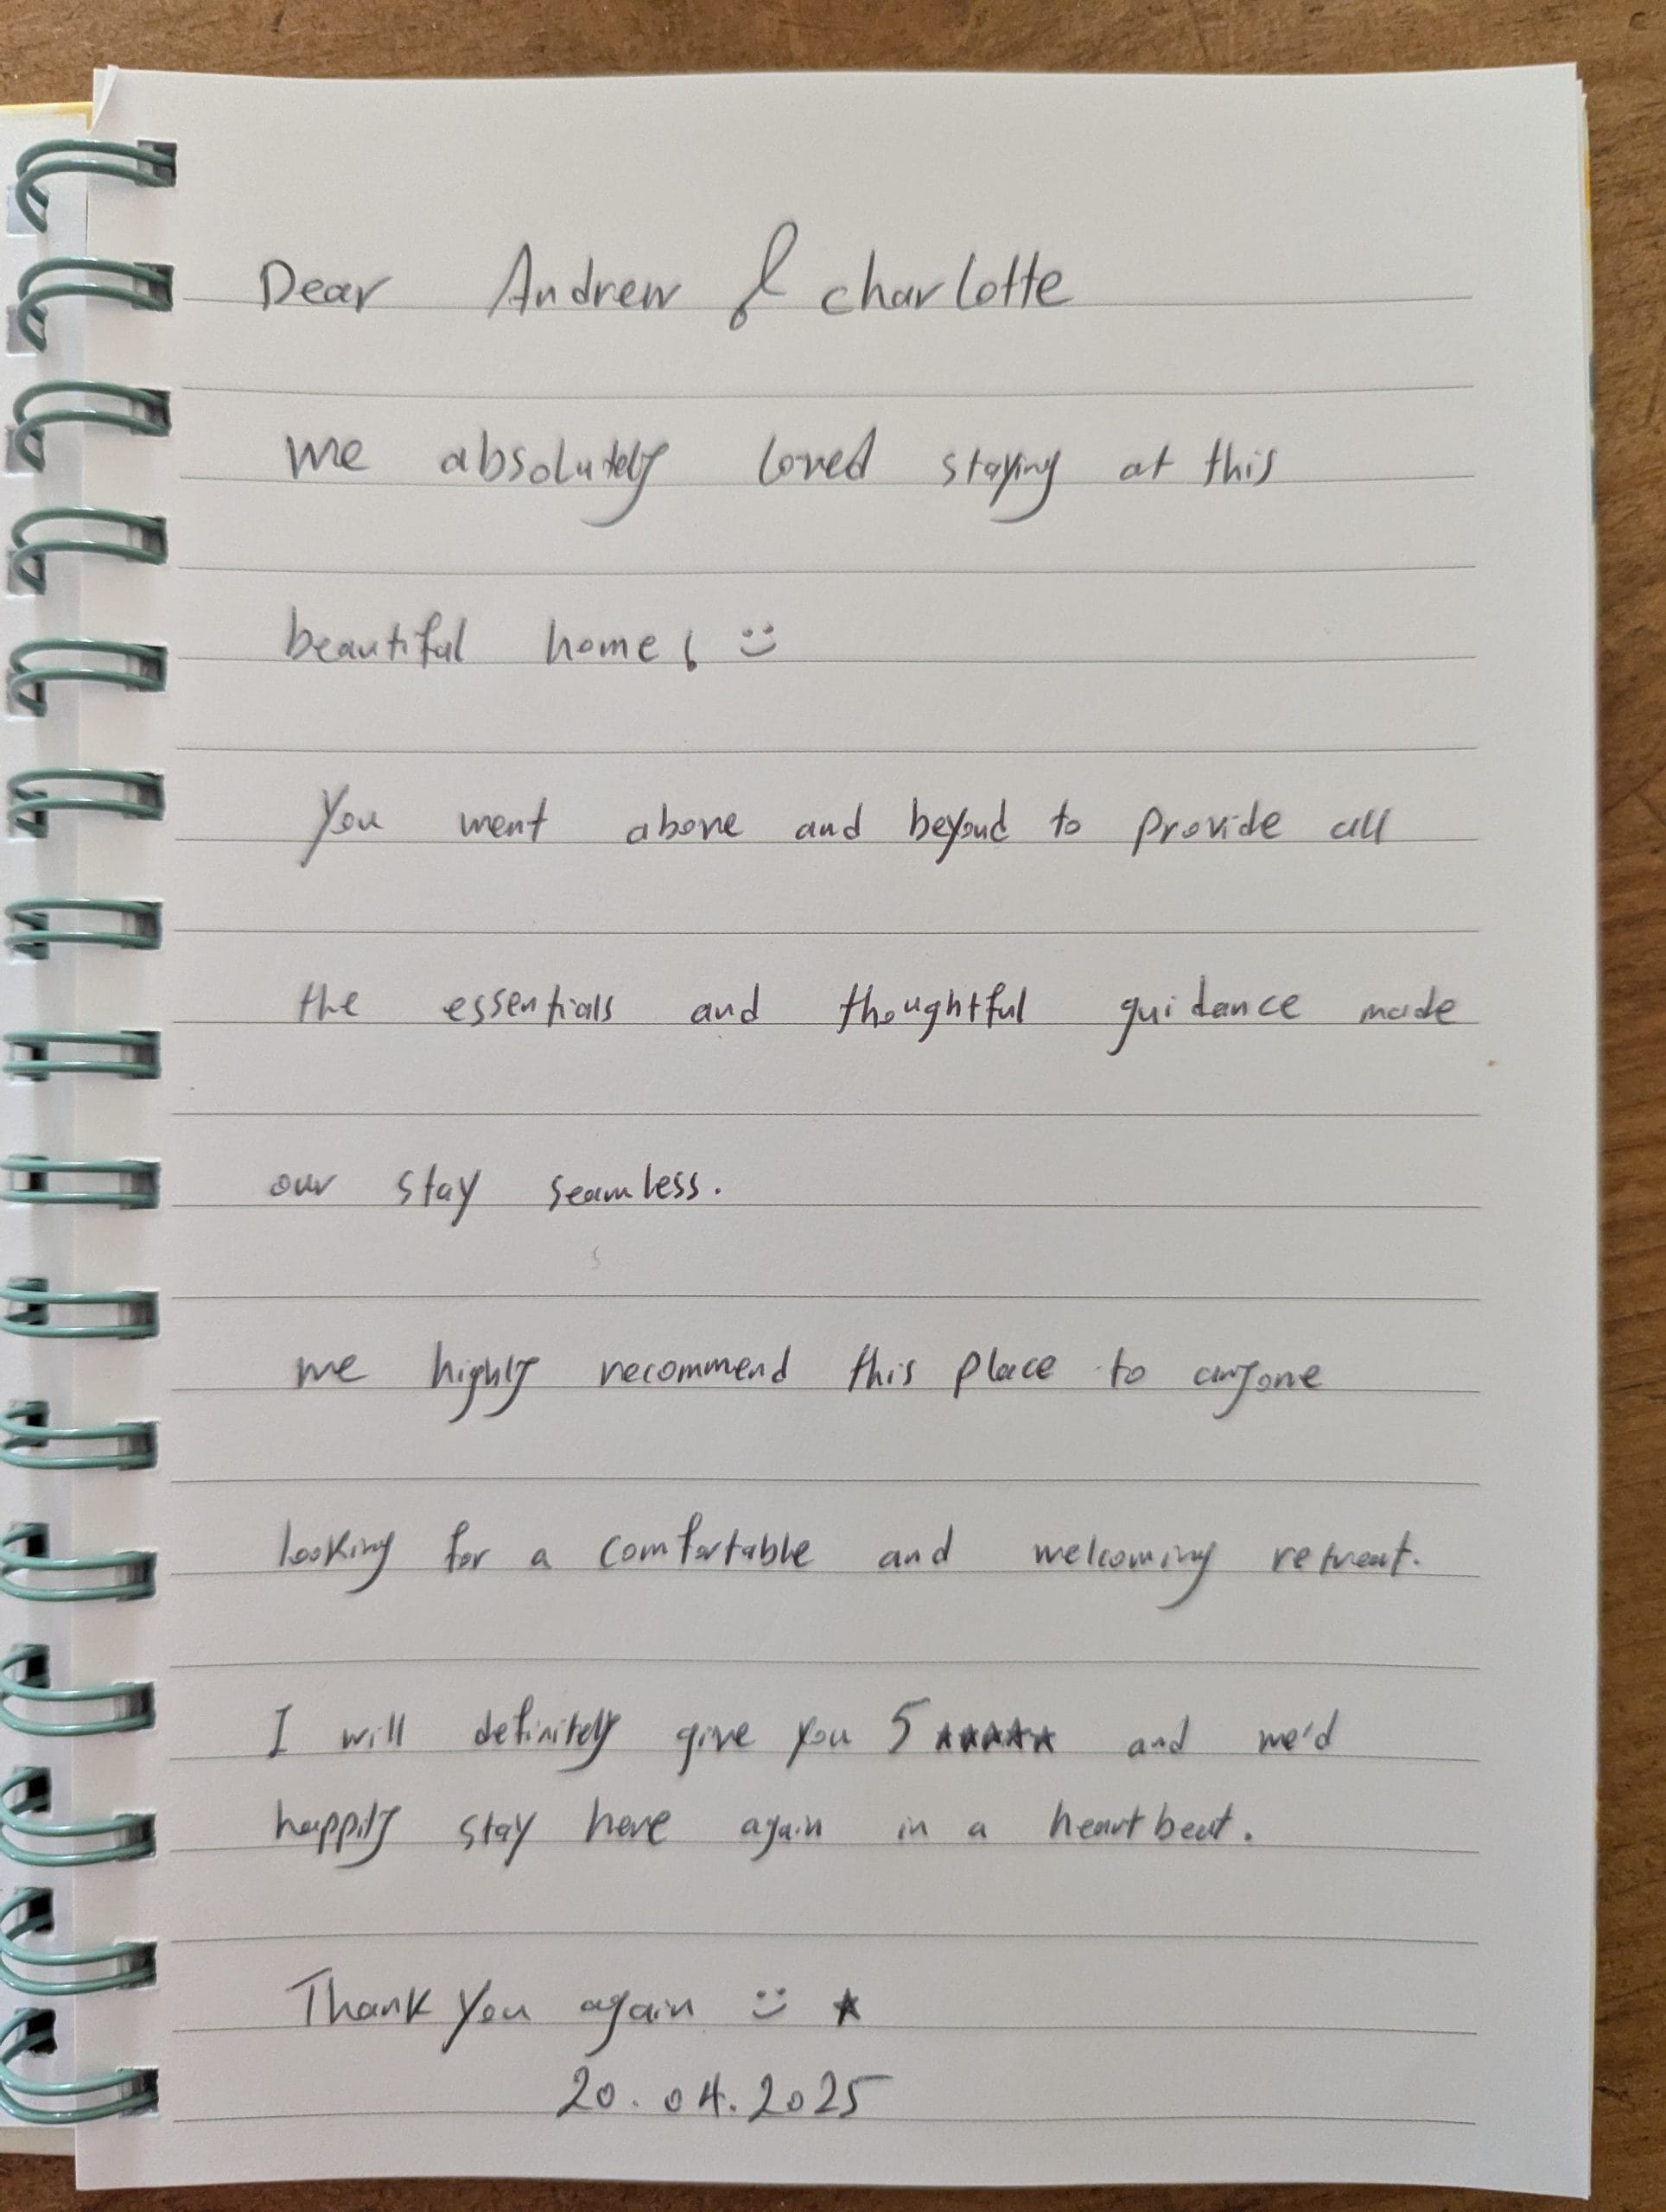 Dear Andrew & charlotte
we absolutely loved staying at this
beautiful home! :)
You went above and beyond to provide all
the essentials and thoughtful guidance made
our stay seamless.
we highly recommend this place to anyone
looking for a comfortable and welcoming retreat.
I will definitely give you 5 ★★★★★ and we'd
happily stay here again in a heartbeat.
Thank you again :) ★
20.04.2025